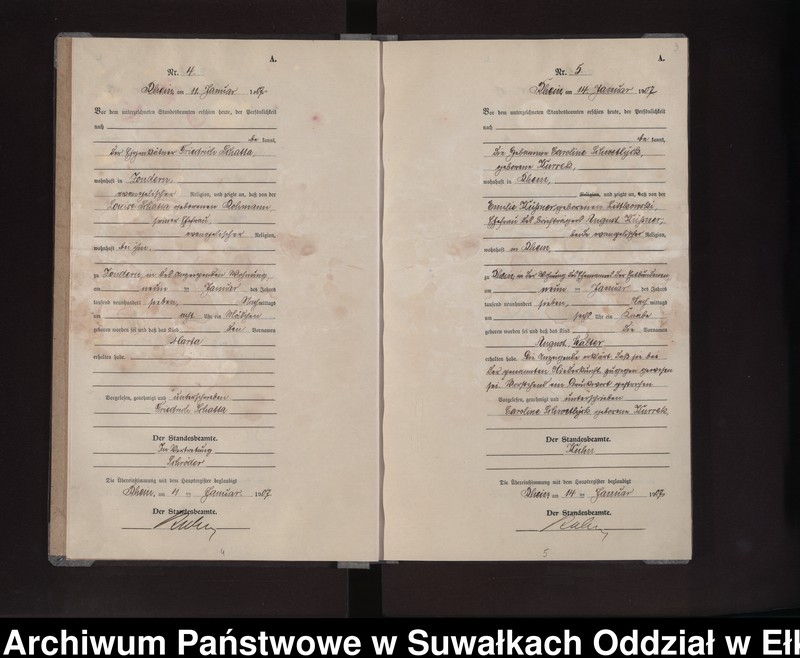 A.
Nr. 4
Rhein, am 11. Januar 1907.
Vor dem unterzeichneten Standesbeamten erschien heute, der Persönlichkeit
nach
be kannt,
der Eigenkätner Friedrich
wohnhaft in Jondern,
evangelischer Religion, und zeigte an, daß von der
Louise geborenen
seiner Ehefrau,
evangelischer Religion,
wohnhaft bei ihm
zu Jondern, in des Anzeigenden Wohnung,
am neunten Januar des Jahres
tausend neunhundert sieben, Nachmittags
um acht Uhr ein Mädchen
geboren worden sei und daß das Kind den Vornamen
Marta
erhalten habe.
Vorgelesen, genehmigt und unterschrieben
Friedrich
Der Standesbeamte.
In Vertretung
Schröder
Die Übereinstimmung mit dem Hauptregister beglaubigt
Rhein, am 11 ten Januar 1907.
Der Standesbeamte.
Kuhn
4
A.
Nr. 5
Rhein am 14. Januar 1907
Vor dem unterzeichneten Standesbeamten erschien heute, der Persönlichkeit
nach
be kannt,
die Hebamme Caroline
geborene Kurrek,
wohnhaft in Rhein,
Religion, und zeigte an, daß von der
Emilie Küßner, geborenen
Ehefrau des Briefträgers August Küßner,
beide evangelischer Religion,
wohnhaft in Rhein,
zu Rhein in der Wohnung des Ehemannes der Entbundenen
am neunten Januar des Jahres
tausend neunhundert sieben, Nach mittags
um sechs Uhr ein Knabe
geboren worden sei und daß das Kind die Vornamen
August, Walter
erhalten habe. Die Anzeigende erklärt, daß sie bei
der genannten Niederkunft zugegen gewesen
sei. Vorstehend ein Druckwort gestrichen
Vorgelesen, genehmigt und unterschrieben
Caroline geborene Kurrek
Der Standesbeamte.
Kuhn
Die Übereinstimmung mit dem Hauptregister beglaubigt
Rhein am 14 ten Januar 1907.
Der Standesbeamte.
Kuhn
5
Archiwum Państwowe w Suwałkach Oddział w Ełk